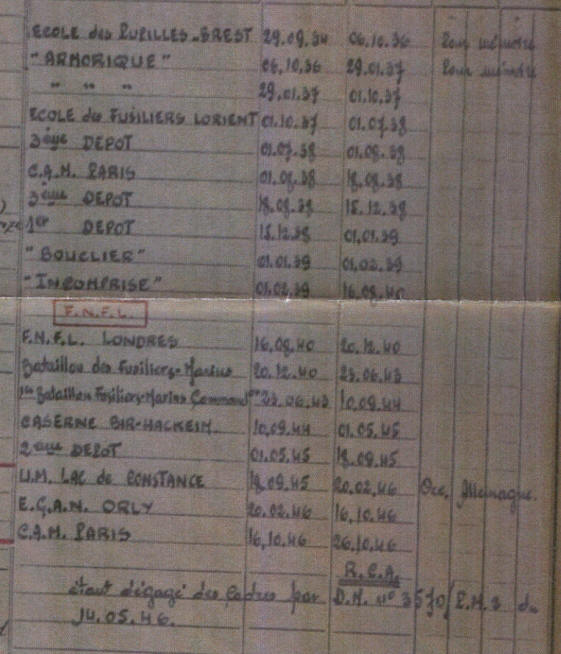 ECOLE des PUPILLES-BREST 29.09.34 06.10.36 Pour mémoire
"ARMORIQUE" 06.10.36 29.01.37 Pour mémoire
" " " 29.01.37 01.10.37
ECOLE des FUSILIERS LORIENT 01.10.37 01.07.38
3ème DEPOT 01.07.38 01.08.38
C.A.M. PARIS 01.08.38 18.08.38
3ème DEPOT 18.08.38 15.12.38
1er DEPOT 15.12.38 01.01.39
"BOUCLIER" 01.01.39 01.02.39
"INCOMPRISE" 01.02.39 16.08.40
F.N.F.L.
F.N.F.L. LONDRES 16.08.40 20.12.40
Bataillon des Fusiliers-Marins 20.12.40 23.06.43
1er Bataillon Fusiliers-Marins Commandos 23.06.43 10.09.44
CASERNE BIR-HACKEIM 10.09.44 01.05.45
2ème DEPOT 01.05.45 18.09.45
U.M. LAC de CONSTANCE 18.09.45 20.02.46 Occ. Allemagne.
E.C.A.N. ORLY 20.02.46 16.10.46
C.A.M. PARIS 16.10.46 26.10.46
R.C.A.
étant dégagé des Cadres par D.M. n° 3570/E.M.2 du
14.05.46.